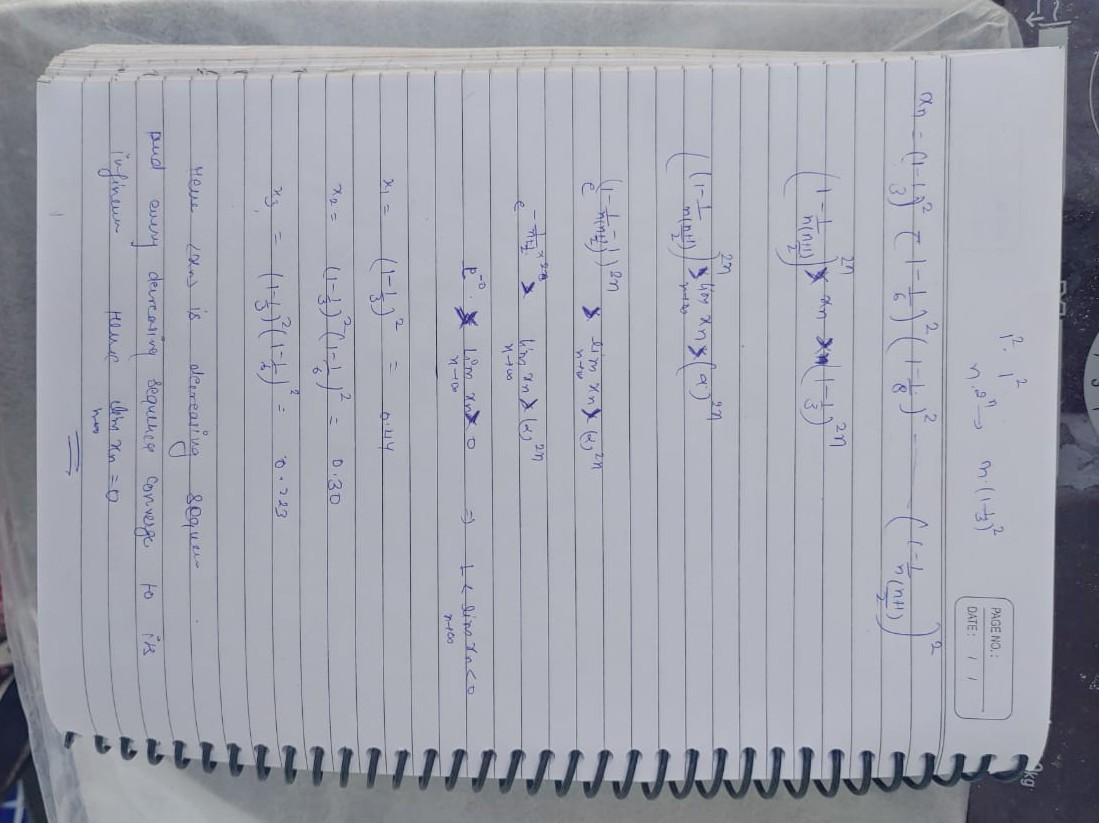 PAGE NO.:
DATE: / /
1². 1²
n.2ⁿ → n.(1-1/3)²
xn = (1-1/3)² (1-1/6)² (1-1/8)² --- (1-1/(n(n+1)/2))²
(1-1/(n(n+1)/2))²ⁿ < xn < (1-1/3)²ⁿ
((1-1/(n(n+1)/2))²ⁿ < lim n→∞ xn < (α)²ⁿ
e^(1-1/(n(n+1)/2) -1)2n < lim n→∞ xn < (α)²ⁿ
< lim n→∞ xn < (α)²ⁿ
e⁻⁰ < lim n→∞ xn < 0 ⇒ 1 < lim n→∞ xn < 0
x₁ = (1-1/3)² = 0.44
x₂ = (1-1/3)² (1-1/6)² = 0.30
x₃ = (1-1/3)² (1-1/6)² = 0.223
Here <xn> is decreasing sequen
and every decreasing sequence converge to its
infimum Hence lim n→∞ xn = 0
kg